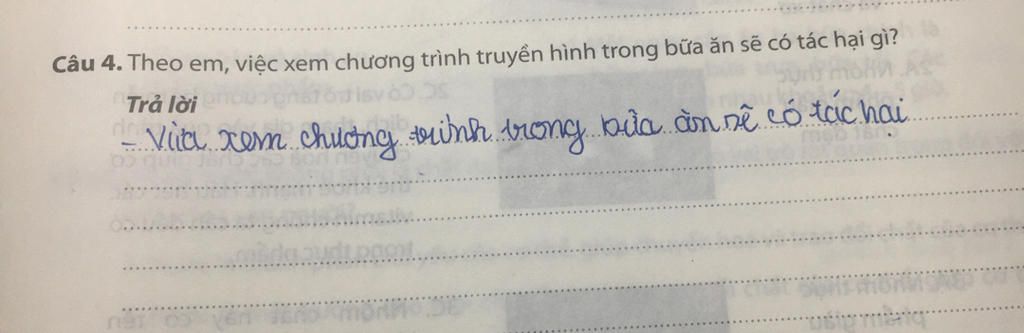 Câu 4. Theo em, việc xem chương trình truyền hình trong bữa ăn sẽ có tác hại gì?
Trả lời
- Vừa xem chương trình trong bữa ăn sẽ có tác hại